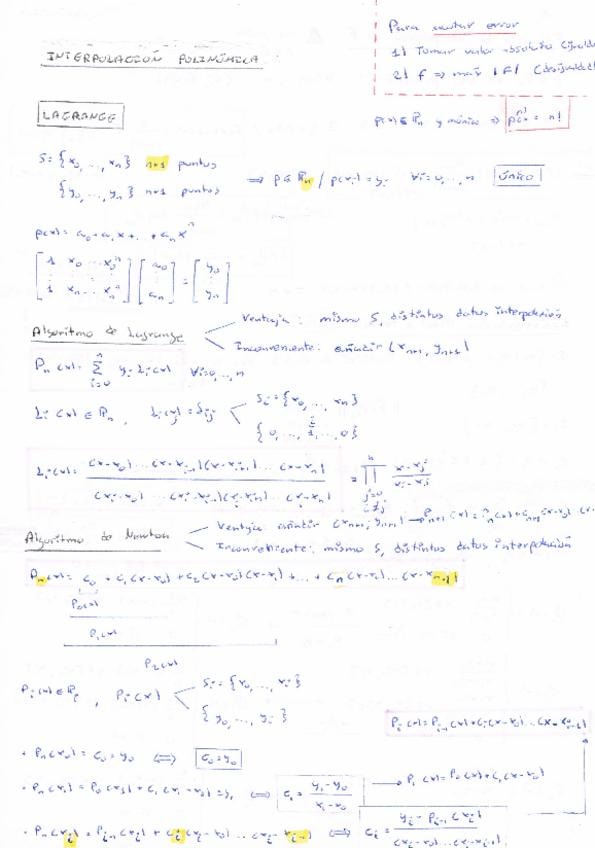 Para acotar error
1) Tomar valor absoluto
2) f => max |F|
INTERPOLACIÓN POLINÓMICA
p(x) ∈ ℙn y mónico => p^(n)(x) = n!
LAGRANGE
S = {x0, ..., xn} n+1 puntos
{y0, ..., yn} n+1 puntos
=> p ∈ ℙn / p(xi) = yi ∀i = 0, ..., n único
p(x) = a0 + a1x + ... + anx^n
[1 x0 ... x0^n ⋮ 1 xn ... xn^n] [a0 ⋮ an] = [y0 ⋮ yn]
Algoritmo de Lagrange
Ventaja: mismo S, distintos datos interpolación
Inconveniente: añadir (xn+1, yn+1)
Pn(x) = Σ i=0 n yi Li(x) ∀i=0,..,n
Li(x) ∈ ℙn, Li(xj) = δij
Si = {x0, ..., xn}
{0, ..., 1, ..., 0}
i
Li(x) = (x-x0)...(x-xi-1)(x-xi+1)...(x-xn) / (xi-x0)...(xi-xi-1)(xi-xi+1)...(xi-xn) = Π j=0 i≠j n x-xj / xi-xj
Algoritmo de Newton
Ventaja: añadir (xn+1, yn+1) → Pn+1(x) = Pn(x) + cn+1(x-x0)
Inconveniente: mismo S, distintos datos interpolación
Pn(x) = c0 + c1(x-x0) + c2(x-x0)(x-x1) + ... + cn(x-x0)...(x-xn-1)
P0(x)
P1(x)
P2(x)
Pi(x) ∈ ℙi, Pi(x)
Si = {x0, ..., xi}
{y0, ..., yi}
Pi(x) = Pi-1(x) + ci(x-x0)...(x-xi-1)
• Pn(x0) = c0 = y0 <=> c0 = y0
• Pn(x1) = P0(x1) + c1(x1-x0) = y1 <=> c1 = y1-y0 / x1-x0 → P1(x) = P0(x) + c1(x-x0)
• Pn(xi) = Pi-1(xi) + ci(xi-x0)...(xi-xi-1) <=> ci = yi - Pi-1(xi) / (xi-x0)...(xi-xi-1)